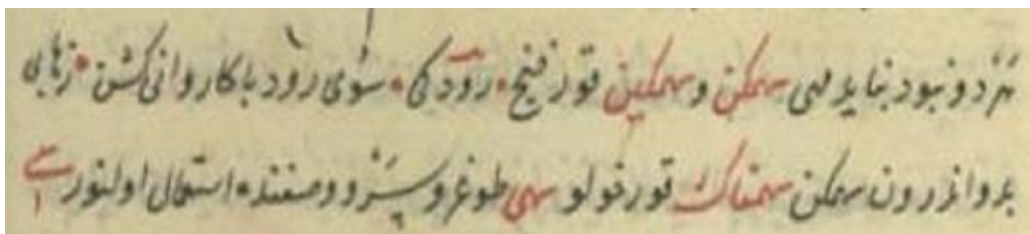 و نبود نباید سهمکن و سهمکین قورقنج • رودکی • سوی رود با کاروانی کشن • زهابی
بدو اندرون سهمکن سهمناک قورقولو سهی طوغرو وصفنده استعمال اولنور